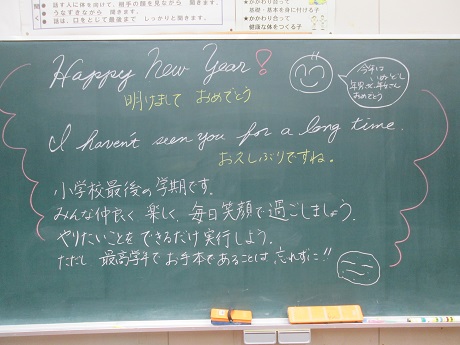 話す人に体を向けて、相手の顔を見ながら 聞きます。
うなずきながら 聞きます。
話は、口をとじて最後まで しっかりと聞きます。
聞く
★かかわり合って
基礎・基本を身に付ける子
★かかわり合って
健康な体をつくる子
Happy New Year!
明けまして おめでとう
今年は
年男、年女
おめでとう
I haven't seen you for a long time.
おひさしぶりですね。
小学校最後の学期です。
みんな仲良く 楽しく、毎日笑顔で過ごしましょう。
やりたいことを できるだけ実行しよう。
ただし 最高学年で お手本であることは 忘れずに!!